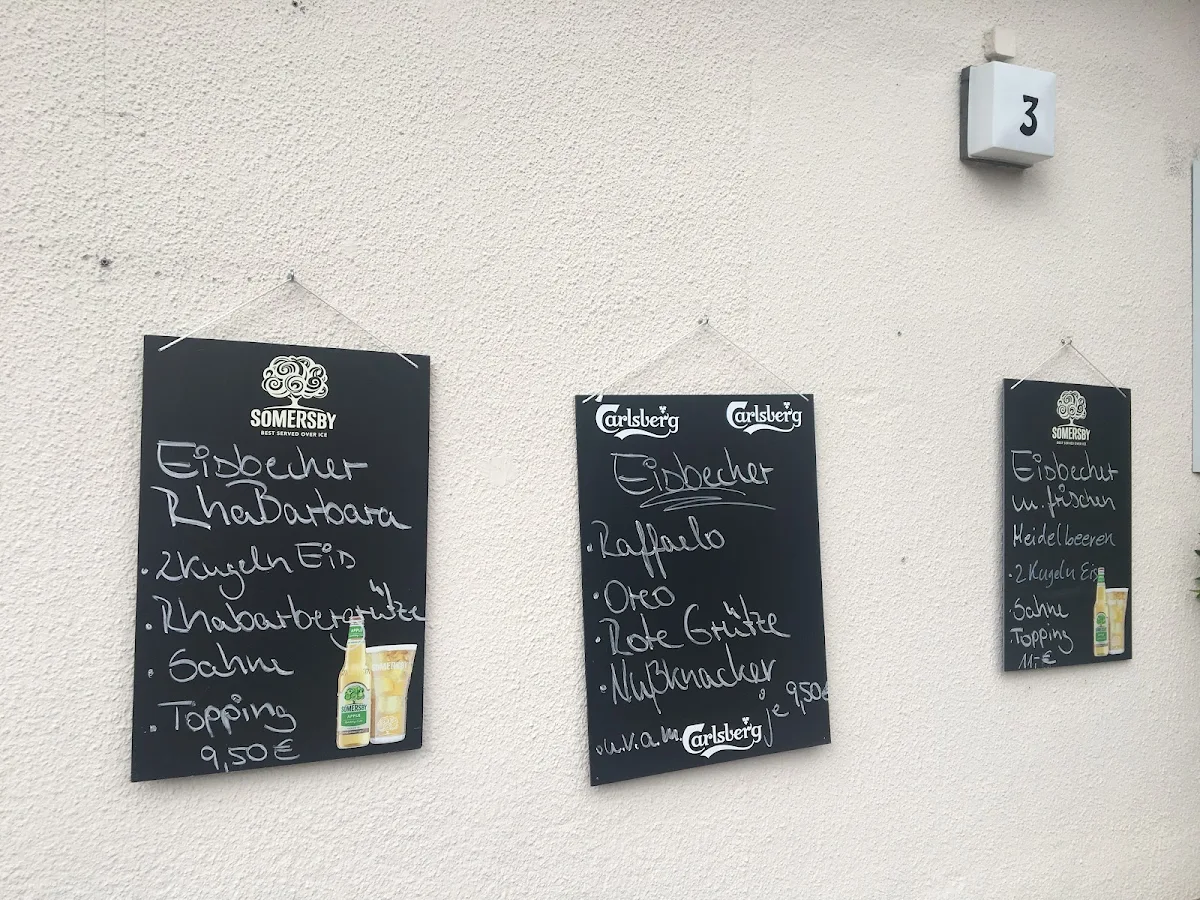 3
SOMERSBY
BEST SERVED OVER ICE
Eisbecher
RhaBarbara
· 2 Kugeln Eis
· Rhabarbergrütze
· Sahne
· Topping
9,50 €
APPLE
SOMERSBY
APPLE
Carlsberg Carlsberg
Eisbecher
· Raffaelo
· Oreo
· Rote Grütze
· Nußknacker
je 9,50€
· u.v.a.m.
Carlsberg
SOMERSBY
BEST SERVED OVER ICE
Eisbecher
m. frischen
Heidelbeeren
· 2 Kugeln Eis
· Sahne
· Topping
11,-€